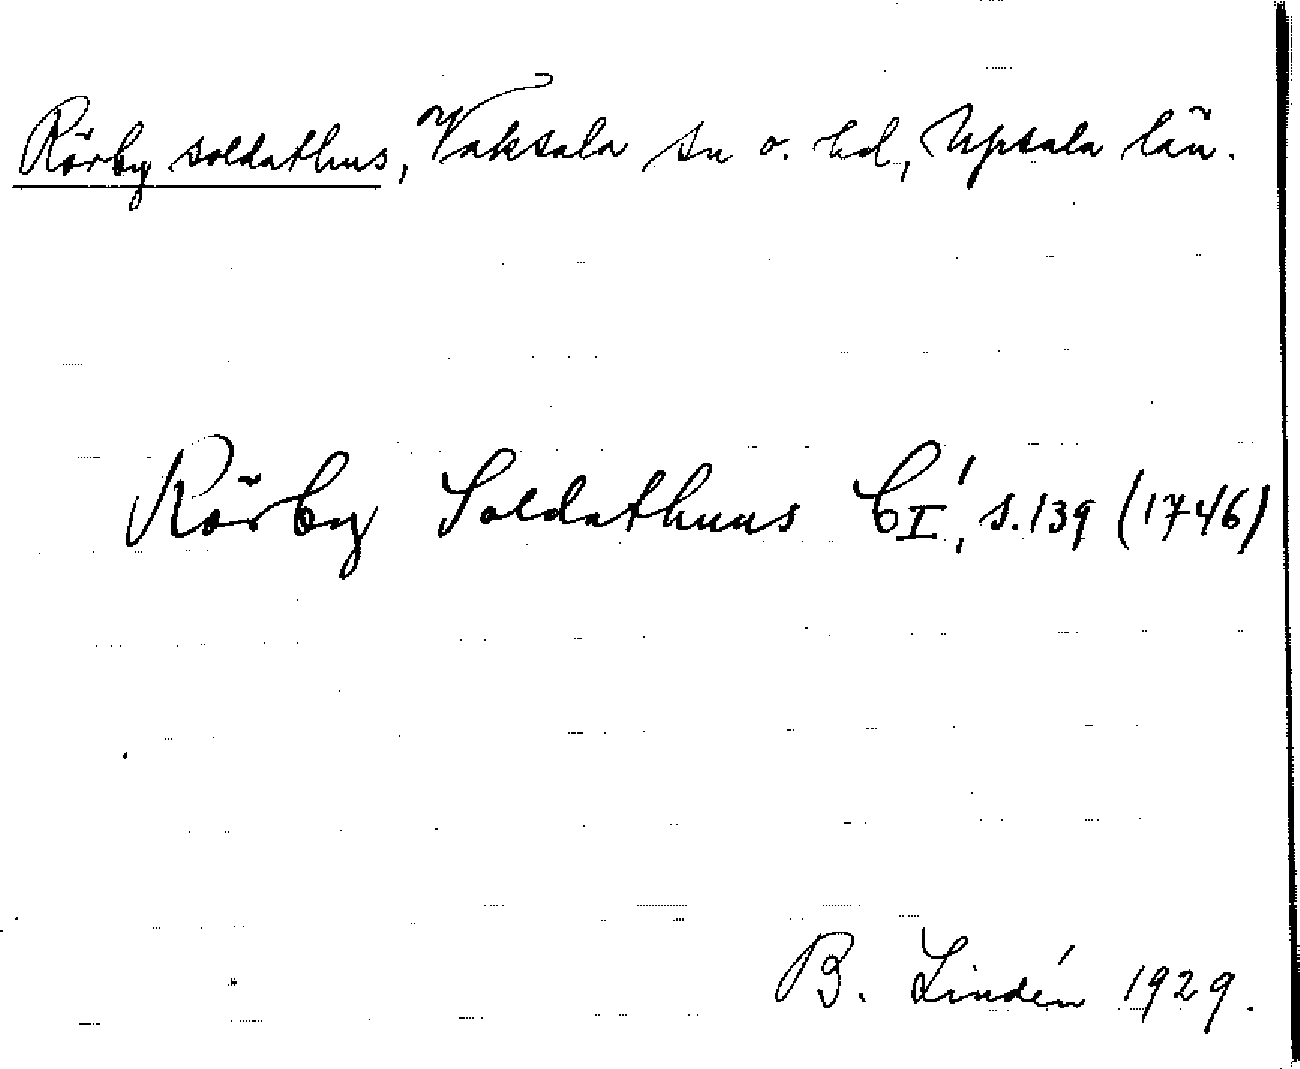 Rörby soldathus, Vaksala sn o. hd, Upsala län.
Rörby Soldathuus CI', s. 139 (1746)
B. Lindén 1929.